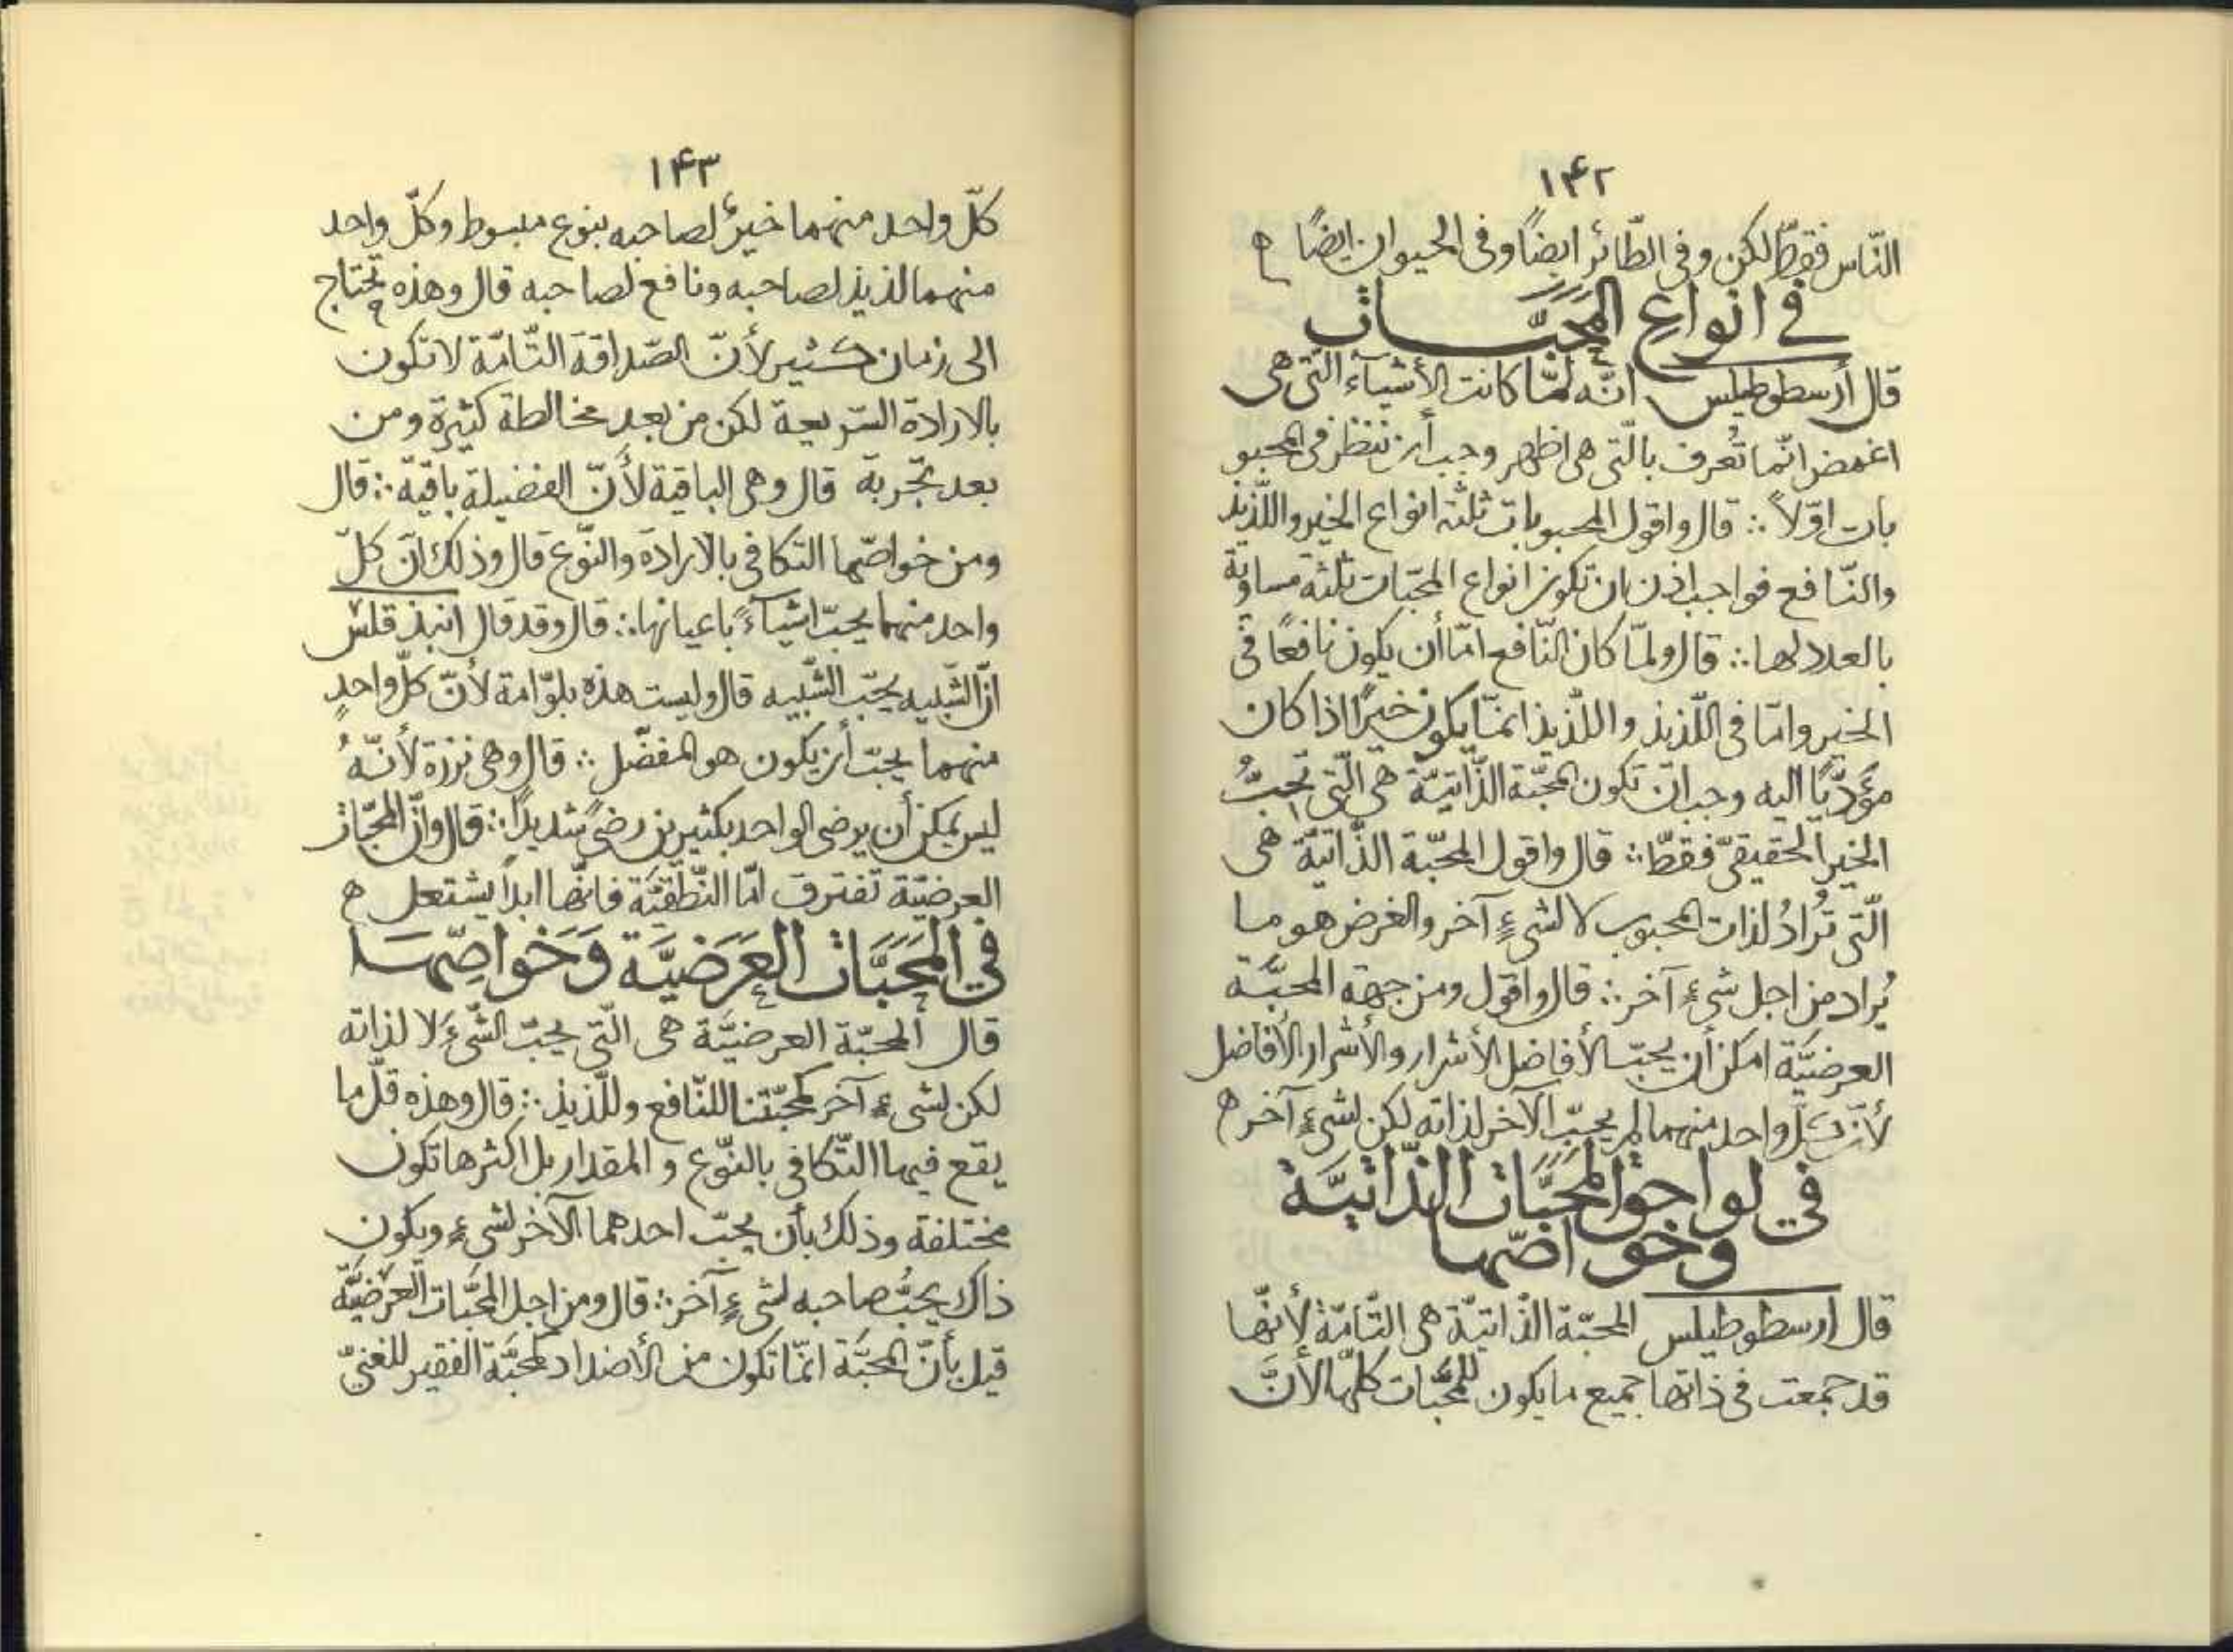 ١۴٢
النّاس فقطّ لكن وفى الطّائر ايضًا وفى الحيوان ايضًا ه
فى انواع المَحَبَّات
قال أرسطوطيلس انّه لمّا كانت الأشياء الّتى هى
اغمض انّما تُعرف بالّتى هى اظهر وجب أن ننظر فى المحبو
بات اوّلاً ∴ قال واقول المحبوبات ثلثه انواع الخير واللّذيذ
والنّافع فواجب اذن ان تكون انواع المحبّات ثلثة مساوية
بالعدد لها ∴ قال ولمّا كان النّافع امّا أن يكون نافعًا فى
الخير وامّا فى اللّذيذ واللّذيذ انمّا يكون خيرًا اذا كان
مؤدّيًا اليه وجب ان تكون المحبّة الذّاتيّة هى الّتى تحبُّ
الخير الحقيقىّ فقطّ ∴ قال واقول المحبّة الذّاتيّة هى
الّتى تُرادُ لذات المحبوب لا لشىءٍ آخر والغرض هو ما
يُراد من اجل شىءٍ آخر ∴ قال واقول ومن جهة المحبَّة
العرضيَّة امكن أن يحبّ الأفاضل الأشرار والأشرار الأفاضل
لأنّ كلّ واحد منهما لم يحبّ الآخر لذاته لكن لشىءٍ آخر ه
فى لواحق المَحَبَّات الذّاتيَّة
وخواصّها
قال ارسطوطيلس المحبّة الذّاتيّة هى التّامّة لأنّها
قد جمعت فى ذاتها جميع ما يكون للمحَبَّات كلّها لأنَّ
١۴٣
كلّ واحد منهما خيرٌ لصاحبه بنوع مبسوط وكلّ واحد
منهما لذيذ لصاحبه ونافع لصاحبه قال وهذه تحتاج
الى زمان كثير لأنّ الصّداقة التّامّة لا تكون
بالارادة السّريعة لكن من بعد مخالطة كثيرة ومن
بعد تجربة قال وهى الباقية لأنّ الفضيلة باقية ∴ قال
ومن خواصّها التكافى بالارادة والنّوع قال وذلك انّ كلّ
واحد منهما يحبّ اشياءً باعيانها ∴ قال وقد قال انبذقلس
انّ الشّبيه يحبّ الشّبيه قال وليست هذه بلوّامة لأنّ كلّ واحدٍ
منهما يحبّ أن يكون هو المفضّل ∴ قال وهى نزرة لأنّهُ
ليس يمكن أن يرضى الواحد بكثيرين رضىً شديدًا ∴ قال وانّ المحبّات
العرضيّة تفترق امّا النّطقيّة فانّها ابداً يشتعل ه
فى المَحَبَّات العَرَضيَّة وَخَواصِّهَا
قال المحبّة العرضيَّة هى الّتى يحبّ الشّىءَ لا لذاته
لكن لشىءٍ آخر كمحبّتنا للنّافع وللّذيذ ∴ قال وهذه قلّ ما
يقع فيها التّكافى بالنّوع و المقدار بل اكثرها تكون
مختلفة وذلك بأن يحبّ احدهما الآخر لشىءٍ ويكون
ذاك يحبُّ صاحبه لشىءٍ آخر ∴ قال ومن اجل المحَبَّات العَرَضيَّة
قيل بأنّ المحبَّة انمّا تكون من الأضداد كمحبَّة الفقير للغنىّ